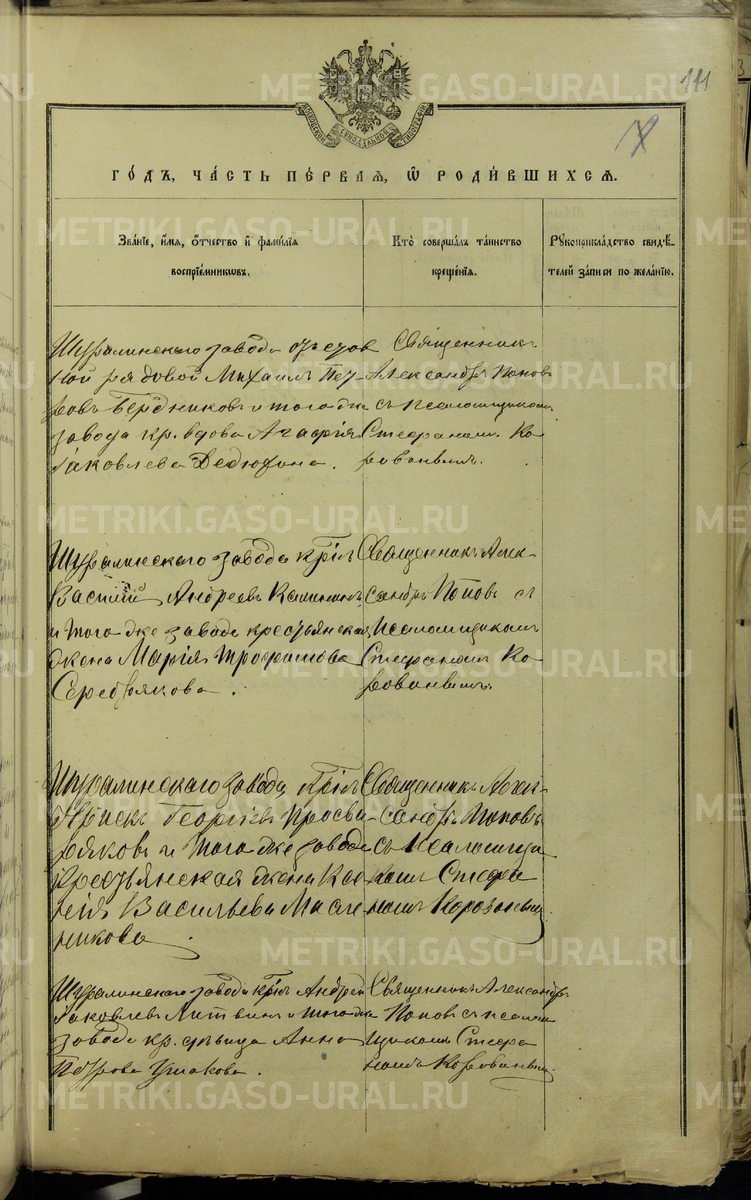 METRIKI.GASO-URAL.RU
111
МОСКОВСКОЙ СѴНОДАЛЬНОЙ ТИПОГРАФІИ
ГО́ДЪ, ЧА́СТЬ ПЕ́РВАЯ, Ѡ҆ РОДИ́ВШИХСЯ.
Зва́нїе, и҆́мя, ѻ҆́тчество и҆ фами́лїя воспрїе́мникѡвъ.
Кто̀ соверша́лъ та́инство креще́нїя.
Рꙋкоприкла́дство свидѣ́телей за́писи по жела́нїю.
Шуралинскаго завода
рядовой Михаилъ Пет-
ровъ Бердниковъ и того же
завода кр. вдова Агафія
Яковлева Дедюхина.
Священникъ
Александръ Попов
съ псаломщикомъ
Стефаномъ Ко-
рованвимъ.
Шуралинскаго завода крт
Василій Андреевъ Калининъ
и того же завода крестьянская
жена Марія Трофимова
Серебрякова.
Священникъ Алек-
сандръ Поповъ съ
Псаломщикомъ
Стефаномъ Ко-
Шуралинскаго завода
Георгіевъ Просви-
ряковъ и того же завода
крестьянская жена Ксе-
нія Васильева Масле-
никова.
Священникъ Алек-
сандръ Поповъ
съ Псаломщи-
комъ Стефа-
номъ
Шуралинскаго завода Андрей
Яковлевъ Литвинъ и того же
завода кр. дѣвица Анна
Петрова Ушакова.
Священникъ Александръ
Поповъ съ псалом
щикомъ Стефа
номъ